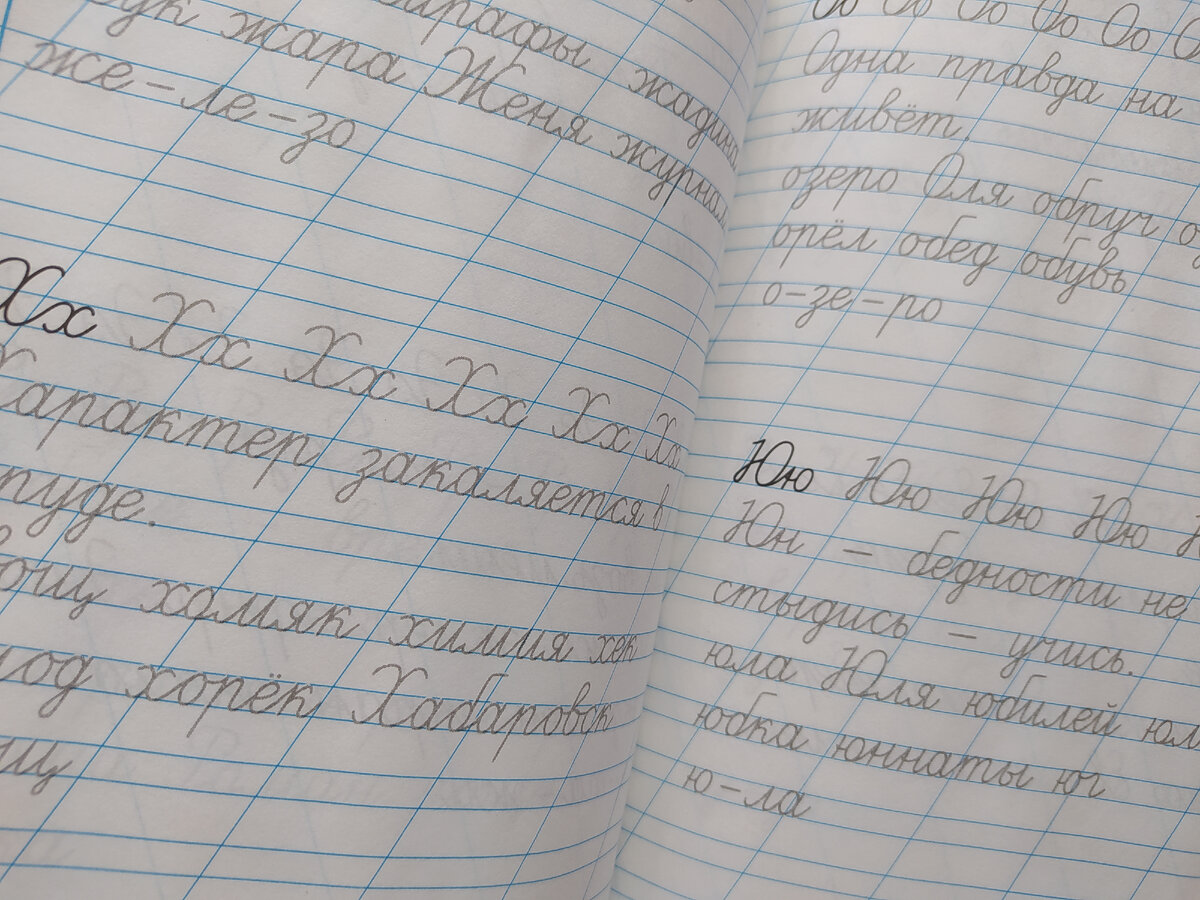 жирафы жадина
жук жара Женя журнал
же-ле-зо
Хх Хх Хх Хх Хх Хх
Характер закаляется в
труде.
хвощ хомяк химия хек
хорёк Хабаровск
Оо Оо Оо Оо Оо
Одна правда на
живёт.
озеро Оля обруч
орёл обед обувь
о-зе-ро
Юю Юю Юю Юю
Юн – бедности не
стыдись – учись.
юла Юля юбилей
юбка юннаты юг
ю-ла